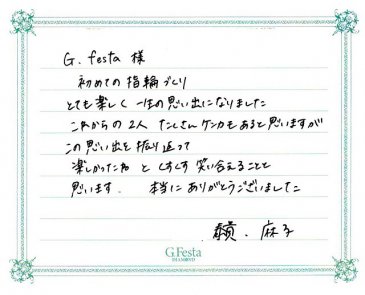 G. festa 様
初めての指輪づくり
とても楽しく 一生の思い出になりました
これからの2人 たくさんケンカもあると思いますが
この思い出を振り返って
楽しかったね と くすくす 笑い合えることと
思います. 本当にありがとうございました
. 麻子
G.Festa
DIAMOND